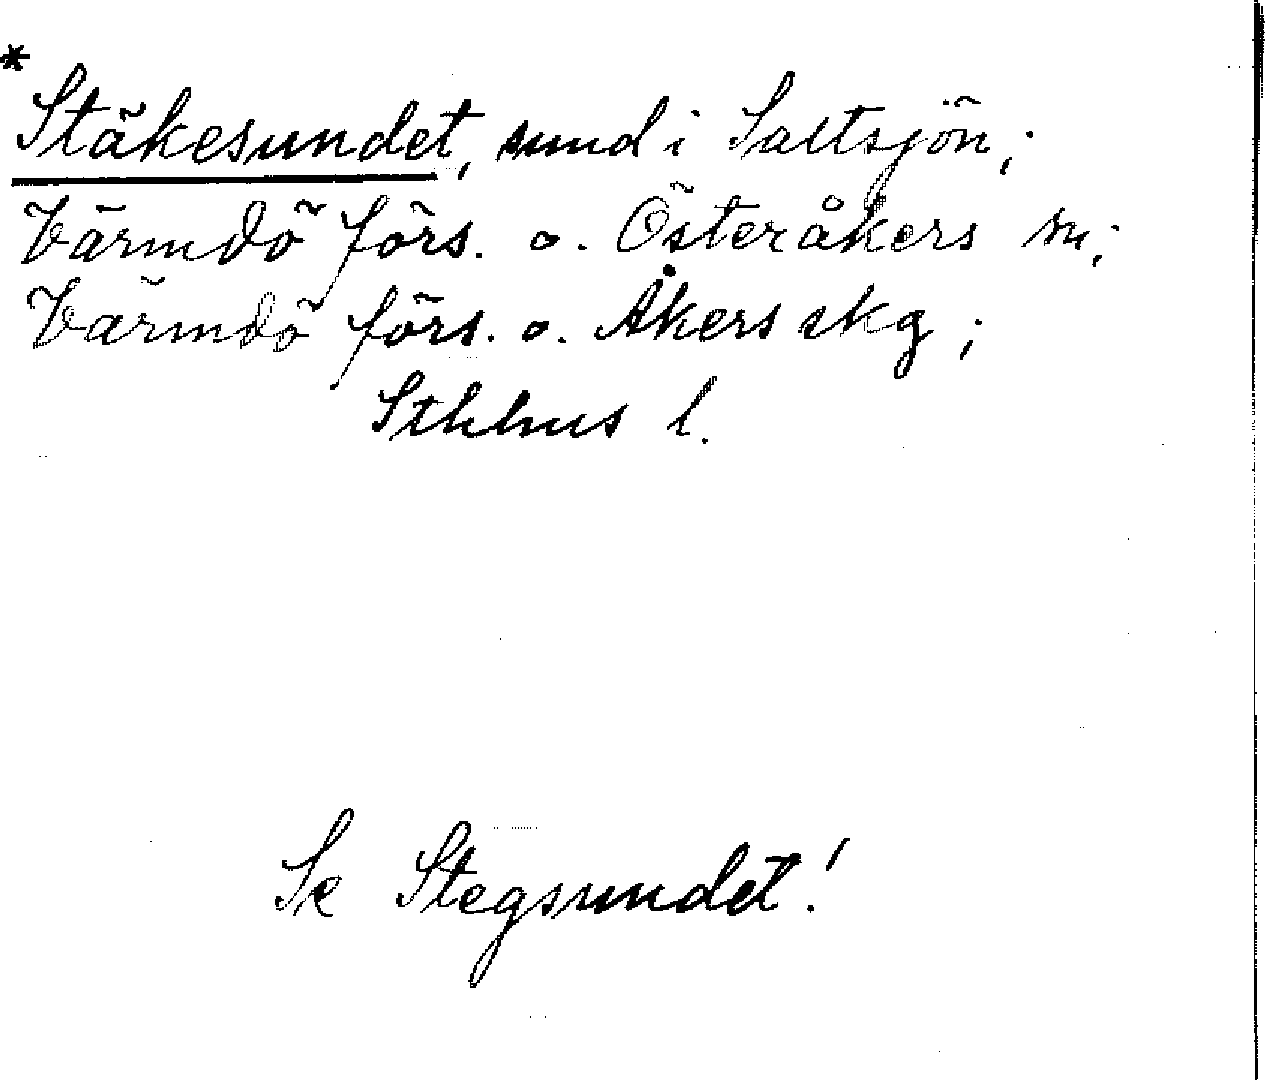 *
Stäkesundet, sund i Saltsjön;
Värmdö förs. o. Österåkers sn;
Värmdö förs. o. Åkers skg;
Sthlms l.
Se Stegsundet!